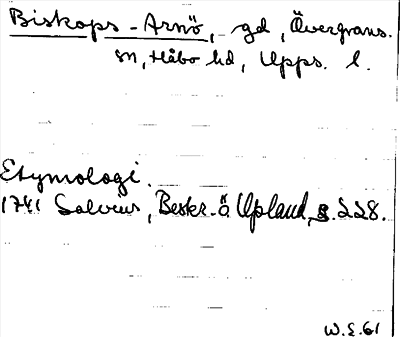 Biskops-Arnö, gd, Övergrans.
sn, Håbo hd, Upps. l.
Etymologi.
1741 Salvius, Beskr. ö. Upland, s. 228.
W.E.61